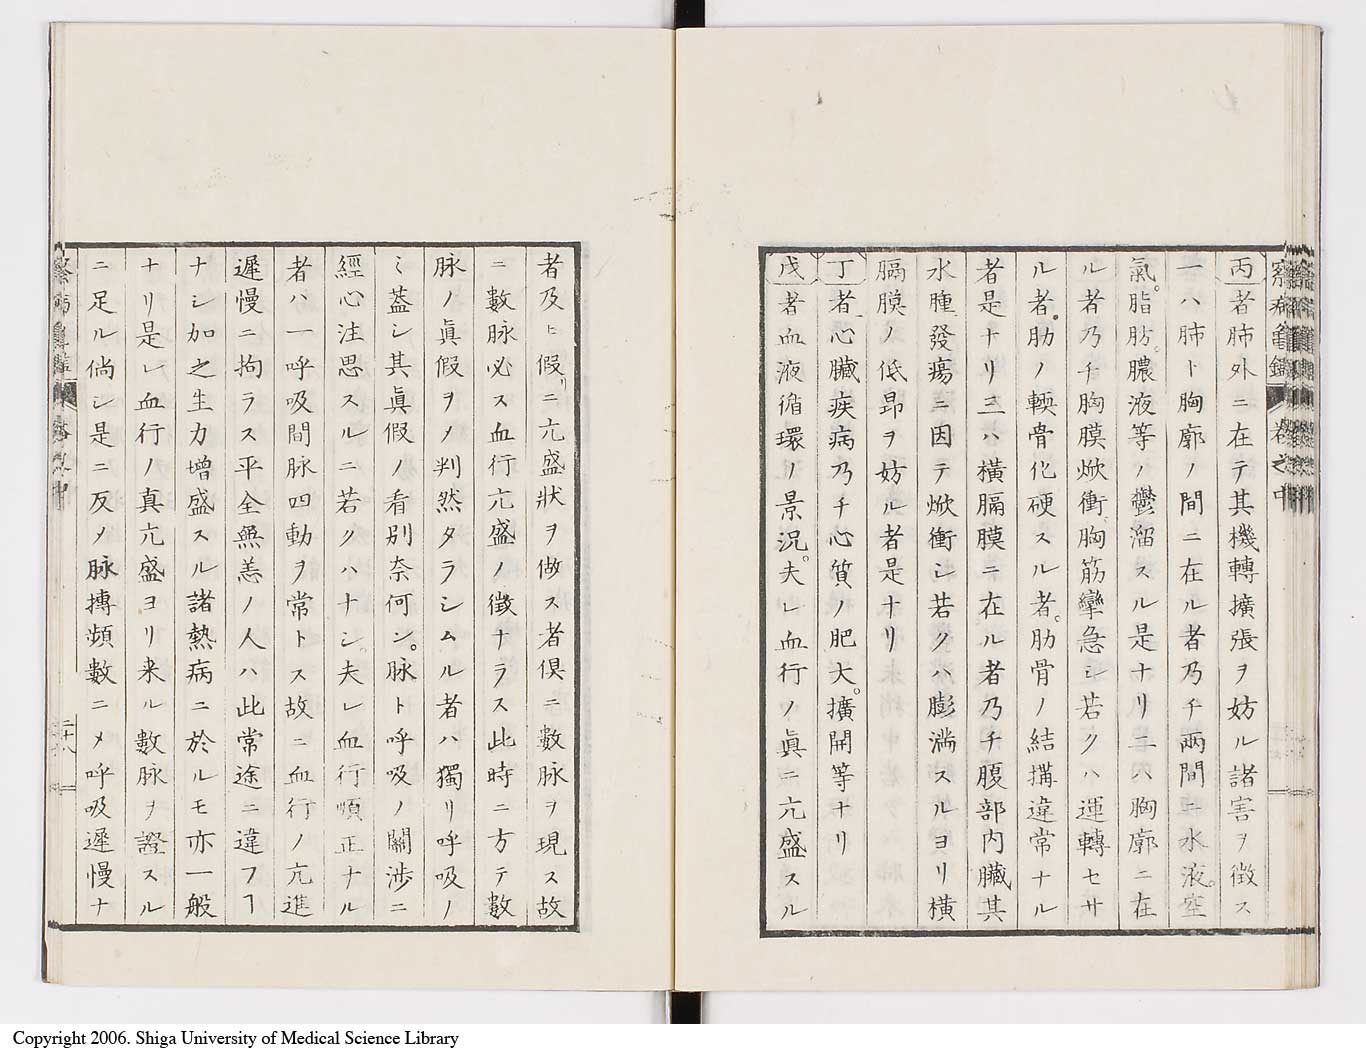 察病亀鑑 卷之中
丙者肺外ニ在テ其機轉擴張ヲ妨ル諸害ヲ徴ス
一ハ肺ト胸廓ノ間ニ在ル者乃チ兩間ニ水液。空
氣。脂肪。膿液等ノ鬱溜スル是ナリ二ハ胸廓ニ在
ル者乃チ胸膜焮衝胸筋攣急シ若クハ運轉セサ
ル者肋ノ輭骨化硬スル者。肋骨ノ結搆違常ナル
者是ナリ三ハ横膈膜ニ在ル者乃チ腹部内臓其
水腫發瘍ニ因テ焮衝シ若クハ膨満スルヨリ横
膈膜ノ低昻ヲ妨ル者是ナリ
丁者心臓疾病乃チ心質ノ肥大。擴開等ナリ
戊者血液循環ノ景况。夫レ血行ノ眞ニ亢盛スル
者及ヒ假リニ亢盛狀ヲ做ス者倶ニ數脉ヲ現ス故
ニ數脉必ス血行亢盛ノ徴ナラス此時ニ方テ數
脉ノ眞假ヲノ判然タラシムル者ハ獨リ呼吸ノ
ミ蓋シ其眞假ノ看别奈何ン。脉ト呼吸ノ關渉ニ
經心注思スルニ若クハナシ。夫レ血行順正ナル
者ハ一呼吸間脉四動ヲ常トス故ニ血行ノ亢進
遲慢ニ拘ラス平全無恙ノ人ハ此常途ニ違フヿ
ナシ加之生力増盛スル諸熱病ニ於ルモ亦一般
ナリ是レ血行ノ真亢盛ヨリ来ル數脉ヲ證スル
ニ足ル倘シ是ニ反ノ脉搏頻數ニメ呼吸遲慢ナ
察病亀鑑 卷之中
二十八
Copyright 2006. Shiga University of Medical Science Library